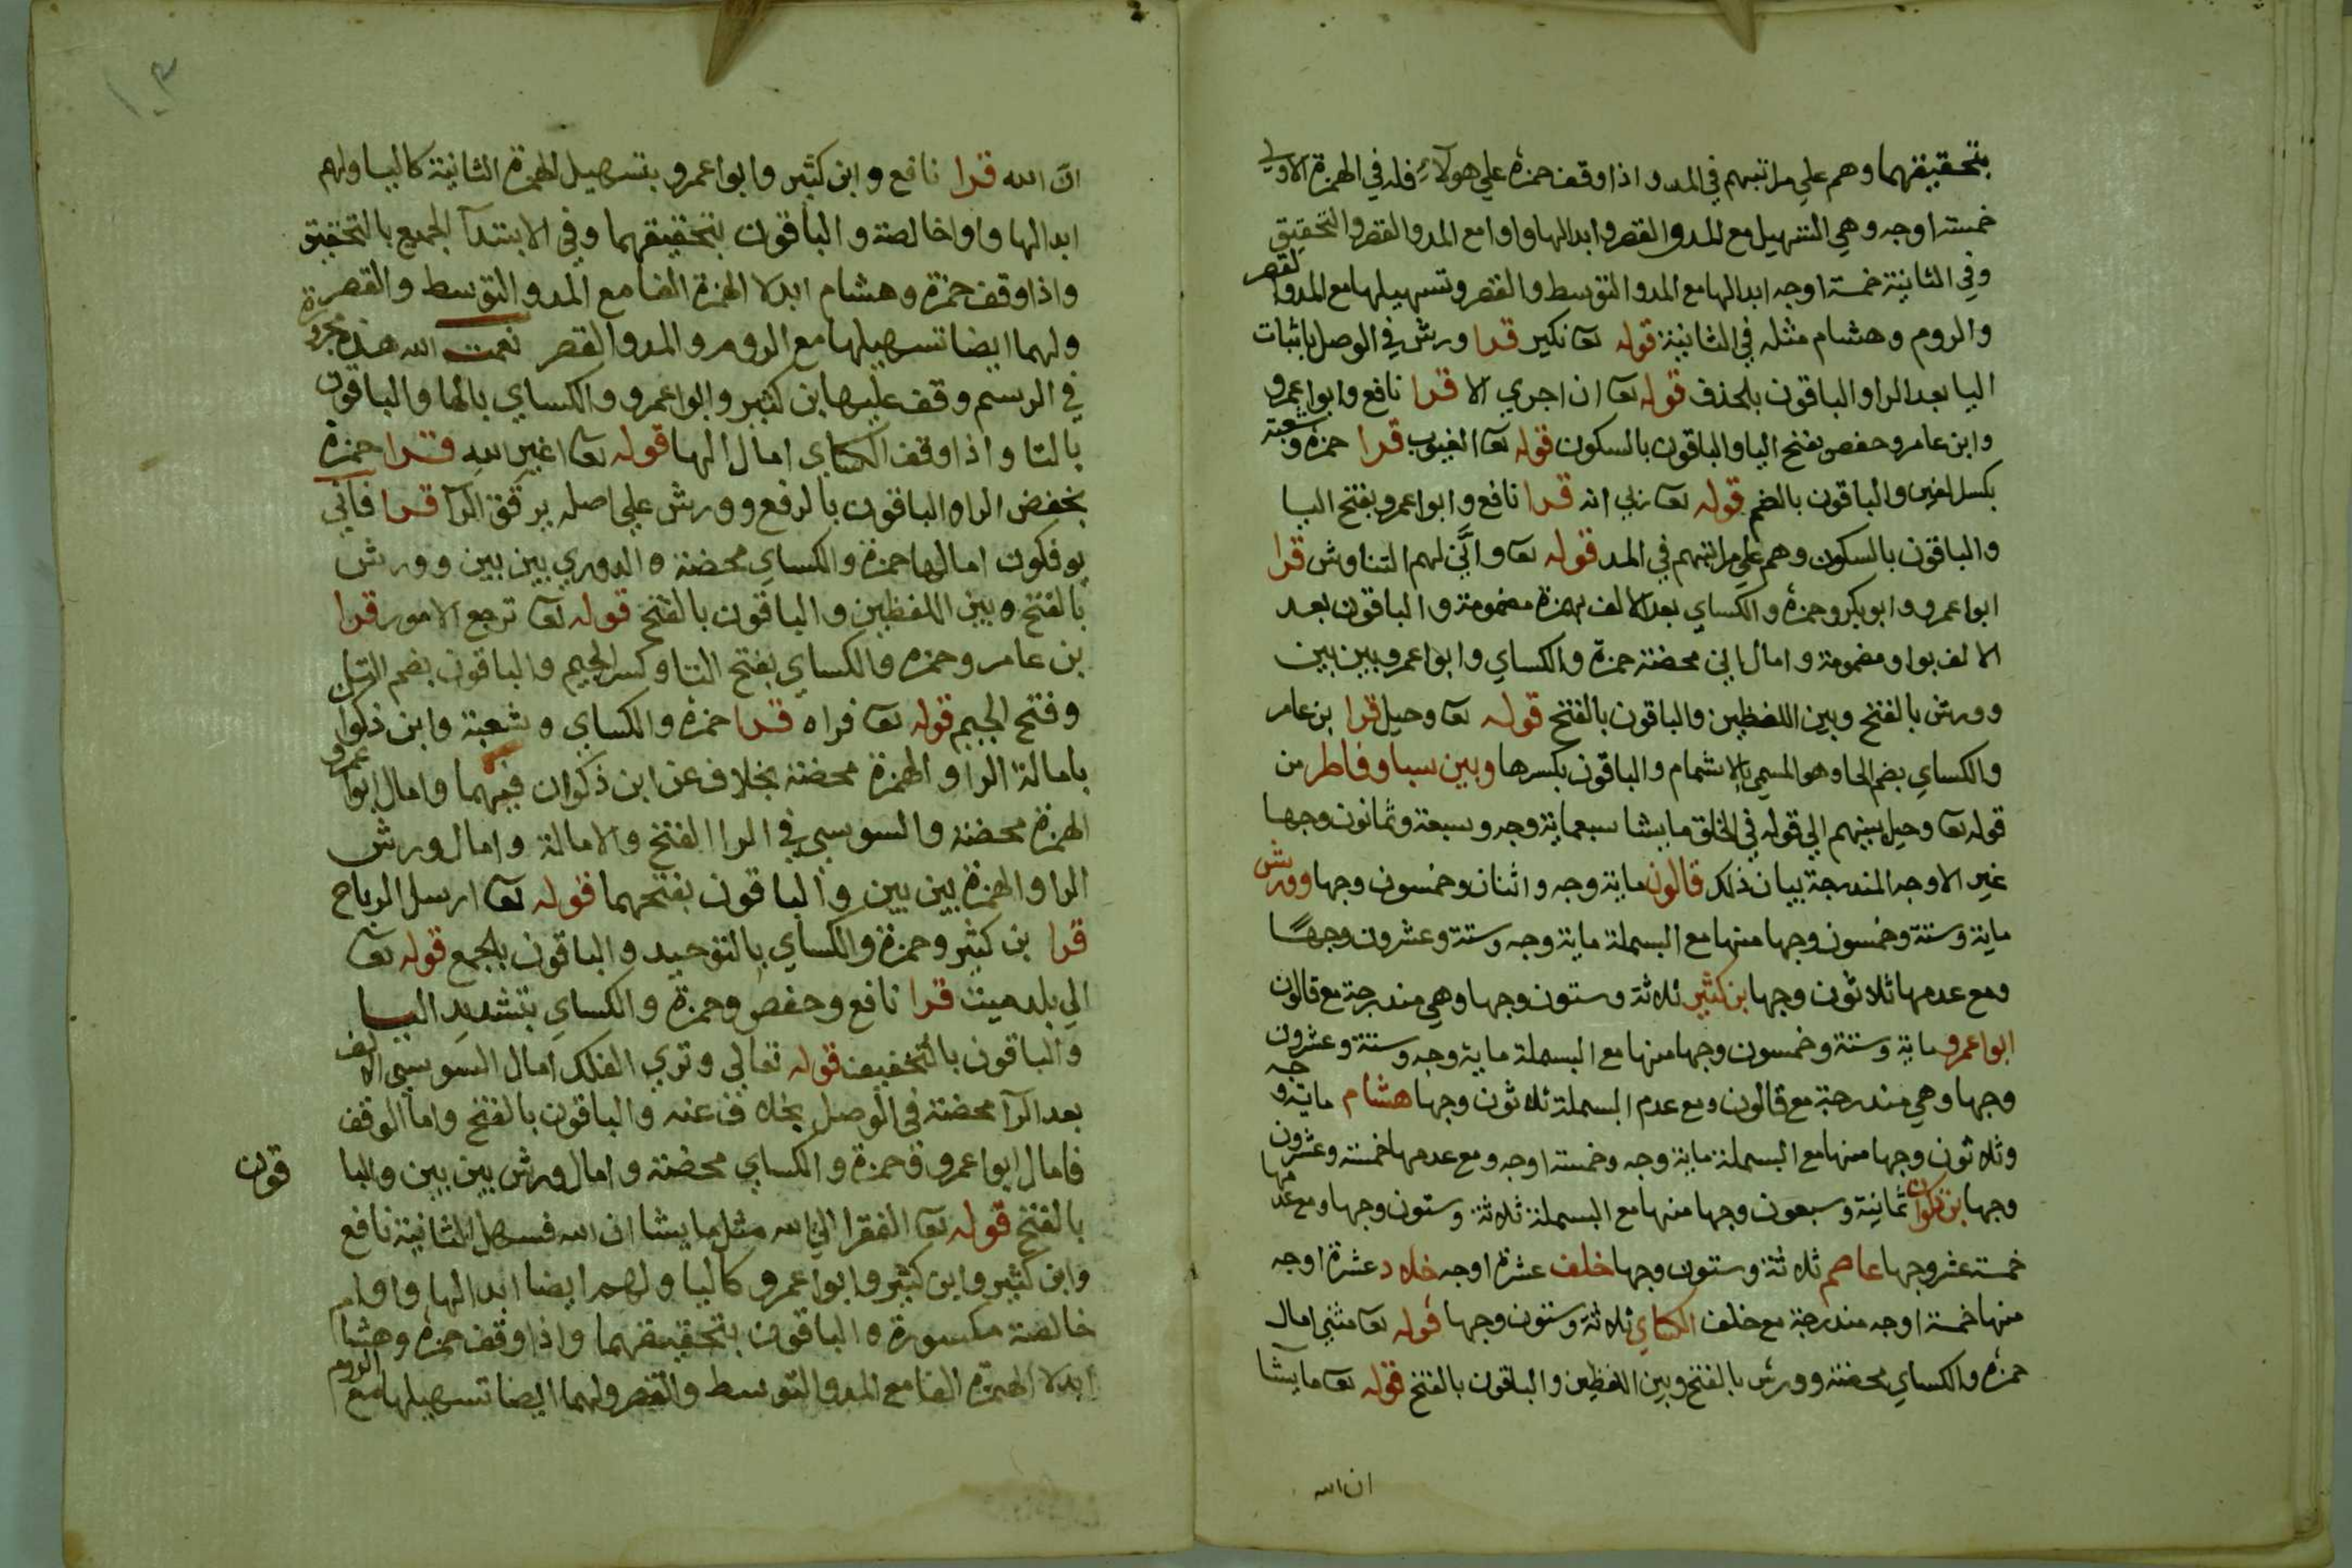 بتحقيقهما وهم علي مراتبهم في المد واذا وقف حمزة علي هولآء فله في الهمزة الاولي
خمسة اوجه وهي التسهيل مع المد والقصر وابدالها واوا مع المد والقصر والتحقيق
وفي الثانية خمسة اوجه ابدالها مع المد والتوسط والقصر وتسهيلها مع المد والقصر
والروم وهشام مثله في الثانية قوله تعا نكير قرا ورش في الوصل باثبات
اليا بعد الرا والباقون بالحذف قوله تعا ان اجري الا قرا نافع وابوا عمرو
وابن عامر وحفص بفتح اليا والباقون بالسكون قوله تعا الغيوب قرا حمزة وشعبة
بكسر الغين والباقون بالضم قوله تعا ربي انه قرا نافع وابوا عمرو بفتح اليا
والباقون بالسكون وهم علي مراتبهم في المد قوله تعا وانّي لهم التناوش قرا
ابوا عمرو وابو بكر وحمزة والكساي بعد الالف بهمزة مضمومة والباقون بعد
الالف بواو مضمومة وامال اني محضة حمزة والكساي وابوا عمرو بين بين
وورش بالفتح وبين اللفظين والباقون بالفتح قوله تعا وحيل قرا بن عامر
والكساي بضم الحا وهو المسمي بالاشمام والباقون بكسرها وبين سبا وفاطر من
قوله تعا وحيل بينهم الي قوله في الخلق ما يشا سبعماية وجه وسبعة وثمانون وجها
غير الاوجه المندرجة بيان ذلك قالون ماية وجه واثنان وخمسون وجها وورش
ماية وستة وخمسون وجها منها مع البسملة ماية وجه وستة وعشرون وجها
ومع عدمها ثلاثون وجها بن كثير ثلاثة وستون وجها وهي مندرجة مع قالون
ابوا عمرو ماية وستة وخمسون وجها منها مع البسملة ماية وجه وستة وعشرون
وجها وهي مندرجة مع قالون ومع عدم البسملة ثلاثون وجها هشام ماية وجه
وثلاثون وجها منها مع البسملة ماية وجه وخمسة اوجه ومع عدمها خمسة وعشرون
وجها بن ذكوان ثمانية وسبعون وجها منها مع البسملة ثلاثة وستون وجها ومع عدمها
خمسة عشر وجها عاصم ثلاثة وستون وجها خلف عشرة اوجه خلاد عشرة اوجه
منها خمسة اوجه مندرجة مع خلف الكساي ثلاثة وستون وجها قوله تعا مثني امال
حمزة والكساي محضة وورش بالفتح وبين اللفظين والباقون بالفتح قوله تعا ما يشا
ان الله
١٠٣
انّ الله قرا نافع وابن كثير وابوا عمرو بتسهيل الهمزة الثانية كاليا ولهم
ابدالها واوا خالصة والباقون بتحقيقهما وفي الابتدآ الجميع بالتحقيق
واذا وقف حمزة وهشام ابدلا الهمزة الفا مع المد والتوسط والقصر
ولهما ايضا تسهيلها مع الروم والمد والقصر نعمت الله هذه مجرورة
في الرسم وقف عليها بن كثير وابوا عمرو والكساي بالها والباقون
بالتا واذا وقف الكساي امال الها قوله تعا غير الله قرا حمزة
بخفض الرا والباقون بالرفع وورش علي اصله يرقق الرآ قرا فاني
يوفكون امالها حمزة والكساي محضة والدوري بين بين وورش
بالفتح وبين اللفظين والباقون بالفتح قوله تعا ترجع الامور قرا
بن عامر وحمزه والكساي بفتح التا وكسر الجيم والباقون بضم التا
وفتح الجيم قوله تعا فراه قرا حمزة والكساي وشعبة وابن ذكوان
بامالة الرا والهمزة محضة بخلاف عن ابن ذكوان فيهما وامال ابوا عمرو
الهمزة محضة والسوسي في الرا الفتح والامالة وامال ورش
الرا والهمزة بين بين والباقون بفتحهما قوله تعا ارسل الرياح
قرا بن كثير وحمزة والكساي بالتوحيد والباقون بالجمع قوله تعا
الي بلد ميت قرا نافع وحفص وحمزة والكساي بتشديد اليا
والباقون بالتخفيف قوله تعالي وتري الفلك امال السوسي الالف
بعد الرآ محضة في الوصل بخلاف عنه والباقون بالفتح واما الوقف
فامال ابوا عمرو وحمزة والكساي محضة وامال ورش بين بين والبا
قون
بالفتح قوله تعا الفقرا الي الله مثل ما يشا ان الله فسهل الثانية نافع
وابن كثير وابن كثير وابوا عمرو كاليا ولهم ايضا ابدالها واوا
خالصة مكسورة والباقون بتحقيقهما واذا وقف حمزة وهشام
ابدلا الهمزة الفا مع المد والتوسط والقصر ولهما ايضا تسهيلها مع الروم